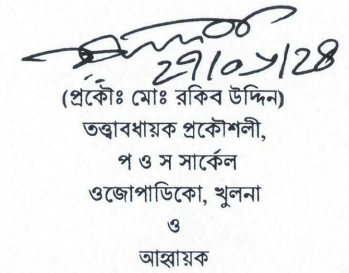 ২৭/০১/২৪
(প্রকৌঃ মোঃ রকিব উদ্দিন)
তত্ত্বাবধায়ক প্রকৌশলী,
প ও স সার্কেল
ওজোপাডিকো, খুলনা
ও
আহ্বায়ক